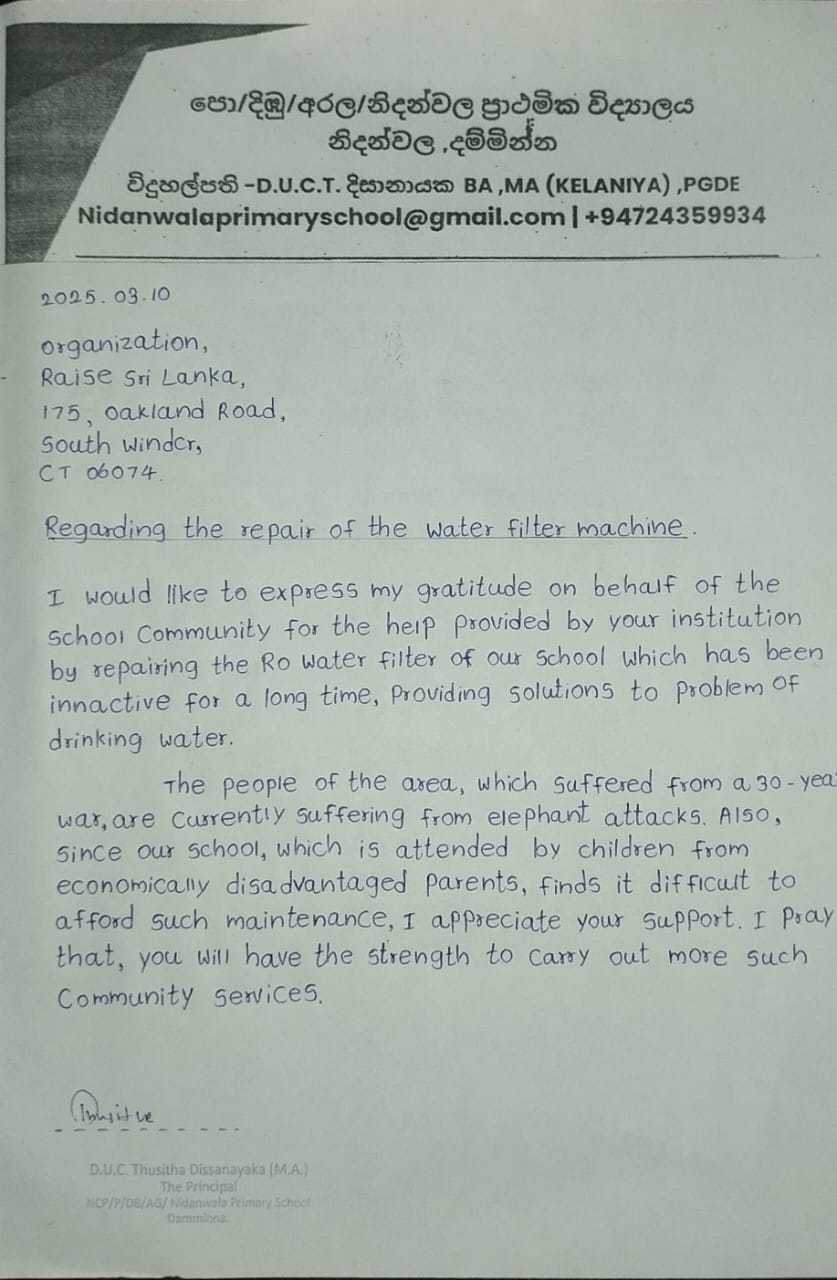 පො/දිඹු/අරල/නිදන්වල ප්‍රාථමික විද්‍යාලය
නිදන්වල ,දම්මින්න
විදුහල්පති -D.U.C.T. දිසානායක BA ,MA (KELANIYA) ,PGDE
Nidanwalaprimaryschool@gmail.com | +94724359934
2025.03.10
organization,
Raise Sri Lanka,
175, Oakland Road,
South Winder,
CT 06074.
Regarding the repair of the water filter machine.
I would like to express my gratitude on behalf of the
School Community for the help provided by your institution
by repairing the Ro water filter of our school which has been
innactive for a long time, Providing solutions to problem of
drinking water.
The people of the area, which suffered from a 30-yea
war, are currently suffering from elephant attacks. Also,
since our school, which is attended by children from
economically disadvantaged parents, finds it difficult to
afford such maintenance, I appreciate your support. I pray
that, you will have the strength to carry out more such
Community services.
D.U.C. Thusitha Dissanayaka (M.A.)
The Principal
NCP/P/DB/AG/ Nidanwala Primary School
Damminna.